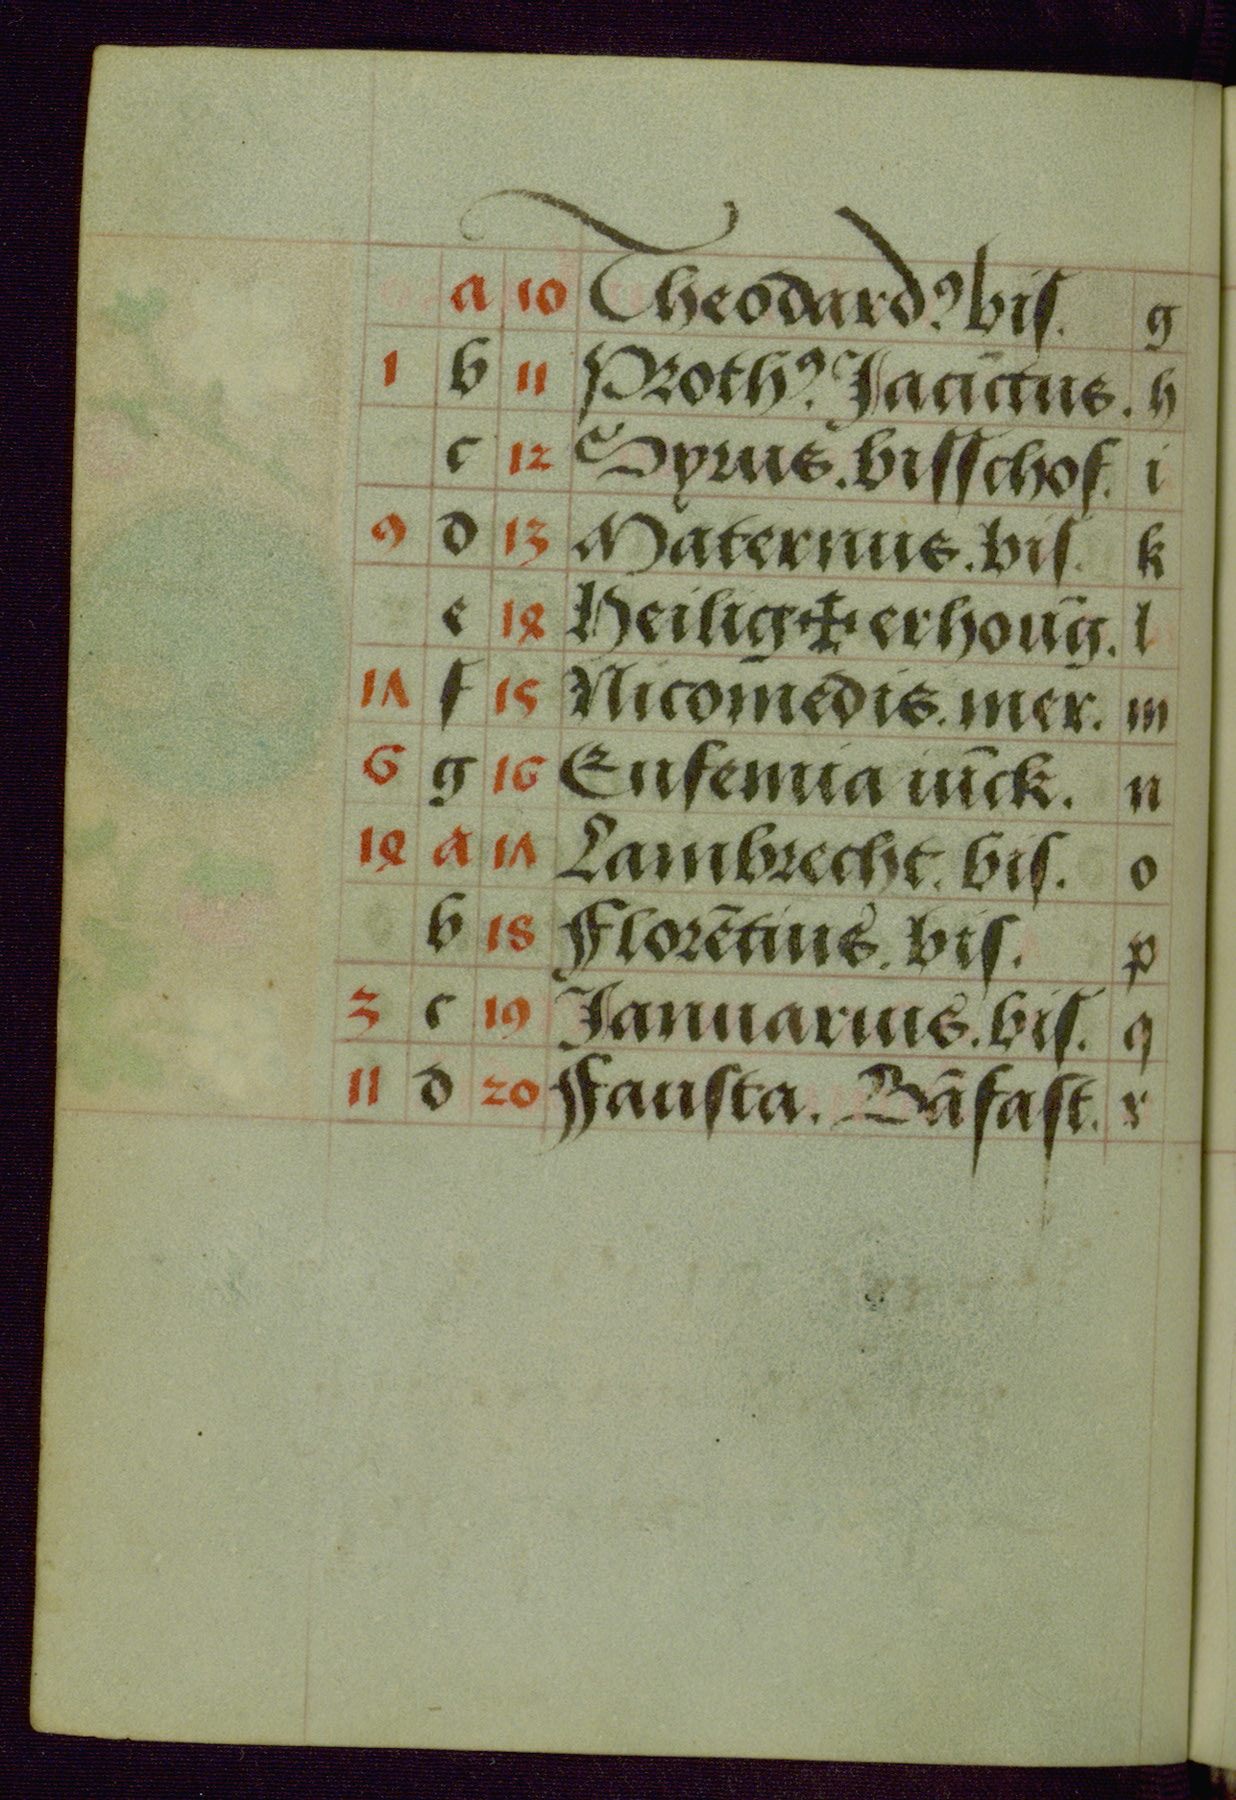 a 10 Theodard⁹ bis. g
1 b 11 Proth⁹. Jacīctus. h
c 12 Syrus. bisschof. i
9 d 13 Maternus. bis. k
e 14 Heilig ✠ erhoūg. l
17 f 15 Nicomedis. mer. m
6 g 16 Eufemia iūck. n
14 a 17 Lambrecht. bis. o
b 18 Florētius. bis. p
3 c 19 Januarius. bis. q
11 d 20 Fausta. Bāfast. r